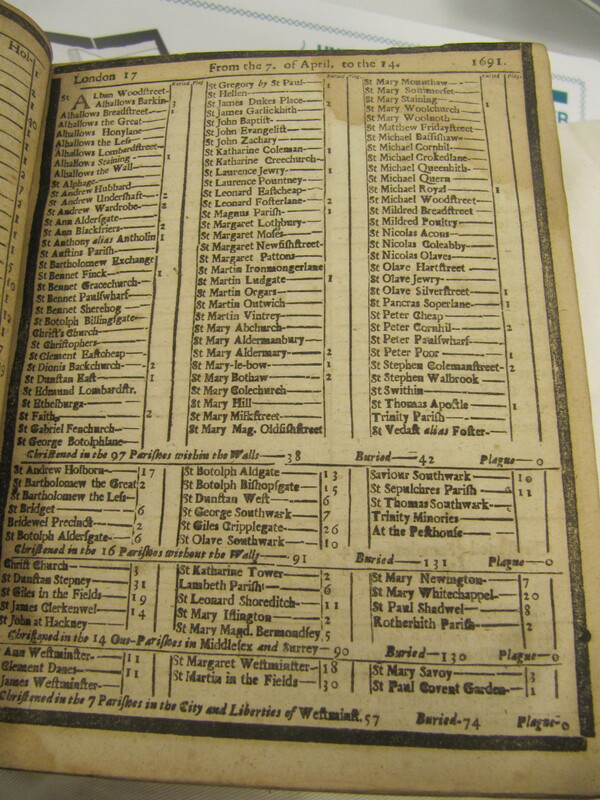 London 17 From the 7. of April, to the 14. 1691.
Buried Plag.
St Alban Woodstreet
Alhallows Barkin 3
Alhallows Breadstreet 1
Alhallows the Great
Alhallows Honylane
Alhallows the Less
Alhallows Lombardstreet
Alhallows Staining 1
Alhallows the Wall
St Alphage
St Andrew Hubbard
St Andrew Undershaft 2
St Andrew Wardrobe 8
St Ann Aldersgate
St Ann Blackfriers 2
St Anthony alias Antholin 1
St Austins Parish
St Bartholomew Exchange
St Bennet Finck 1
St Bennet Gracechurch
St Bennet Paulswharf
St Bennet Sherehog
St Botolph Billingsgate
Christ's Church
St Christophers
St Clement Eastcheap
St Dionis Backchurch 2
St Dunstan East 1
St Edmund Lombardstr.
St Ethelburga
St Faith 2
St Gabriel Fenchurch
St George Botolphlane
Buried Plag.
St Gregory by St Paul 1
St Hellen
St James Dukes Place 2
St James Garlickhith
St John Baptist
St John Evangelist
St John Zachary
St Katharine Coleman 1
St Katharine Creechurch
St Laurence Jewry 1
St Laurence Pountney
St Leonard Eastcheap
St Leonard Fosterlane 2
St Magnus Parish 1
St Margaret Lothbury
St Margaret Moses
St Margaret Newfishstreet
St Margaret Pattons
St Martin Ironmongerlane
St Martin Ludgate 1
St Martin Orgars
St Martin Outwich
St Martin Vintrey
St Mary Abchurch
St Mary Aldermanbury
St Mary Aldermary 2
St Mary-le-bow 1
St Mary Bothaw 2
St Mary Colechurch
St Mary Hill
St Mary Milkstreet
St Mary Mag. Oldfishstreet
Buried Plag.
St Mary Mounthaw
St Mary Sommerset
St Mary Staining 1
St Mary Woolchurch
St Mary Woolnoth
St Matthew Fridaystreet
St Michael Bassishaw
St Michael Cornhil
St Michael Crokedlane
St Michael Queenhith
St Michael Quern
St Michael Royal 1
St Michael Woodstreet
St Mildred Breadstreet
St Mildred Poultry
St Nicolas Acons
St Nicolas Coleabby
St Nicolas Olaves
St Olave Hartstreet
St Olave Jewry
St Olave Silverstreet 1
St Pancras Soperlane 1
St Peter Cheap
St Peter Cornhil 2
St Peter Paulswharf
St Peter Poor 1
St Stephen Colemanstreet 2
St Stephen Walbrook
St Swithin
St Thomas Apostle 1
Trinity Parish
St Vedast alias Foster
Christened in the 97 Parishes within the Walls 38 Buried 42 Plague 0
St Andrew Holborn 17
St Bartholomew the Great 2
St Bartholomew the Less
St Bridget 6
Bridewel Precinct 2
St Botolph Aldersgate 6
St Botolph Aldgate 13
St Botolph Bishopsgate 15
St Dunstan West 6
St George Southwark 7
St Giles Cripplegate 26
St Olave Southwark 10
Saviour Southwark 10
St Sepulchres Parish 11
St Thomas Southwark
Trinity Minories
At the Pesthouse
Christened in the 16 Parishes without the Walls 91 Buried 131 Plague 0
Christ Church 3
St Dunstan Stepney 31
St Giles in the Fields 19
St James Clerkenwel 14
St John at Hackney
St Katharine Tower 2
Lambeth Parish 6
St Leonard Shoreditch 11
St Mary Islington 2
St Mary Magd. Bermondsey 5
St Mary Newington 7
St Mary Whitechappel 20
St Paul Shadwel 8
Rotherhith Parish 2
Christened in the 14 Out-Parishes in Middlesex and Surrey 90 Buried 130 Plague 0
Ann Westminster 11
Clement Danes 11
James Westminster
St Margaret Westminster 18
St Martin in the Fields 30
St Mary Savoy 3
St Paul Covent Garden 1
Christened in the 7 Parishes in the City and Liberties of Westminst. 57 Buried 74 Plague 0